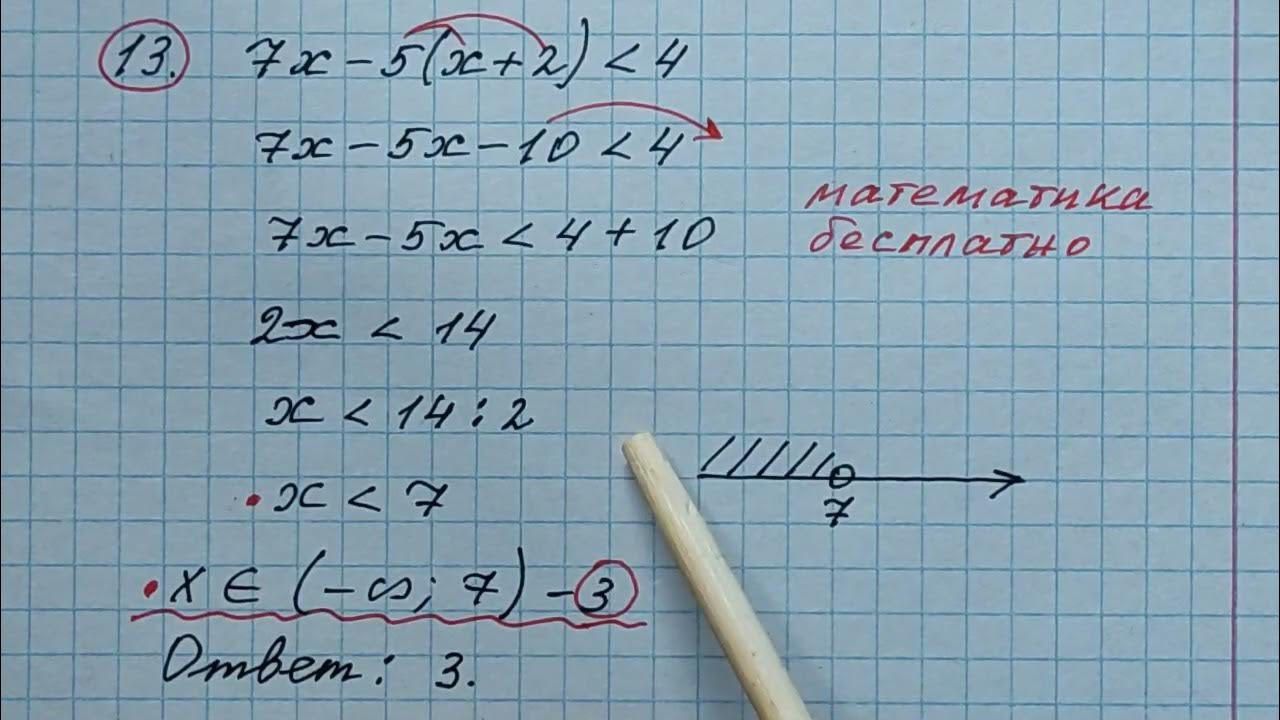 13. 7x - 5(x + 2) < 4
7x - 5x - 10 < 4
математика
бесплатно
7x - 5x < 4 + 10
2x < 14
x < 14 : 2
x < 7
7
x ∈ (-∞; 7) - 3
Ответ: 3.